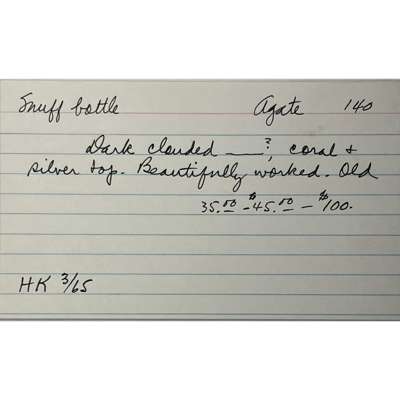 Snuff bottle Agate 140
Dark clouded ___?, coral &
silver top. Beautifully worked. Old
35.00 - $45.00 - $100.
HK 3/65